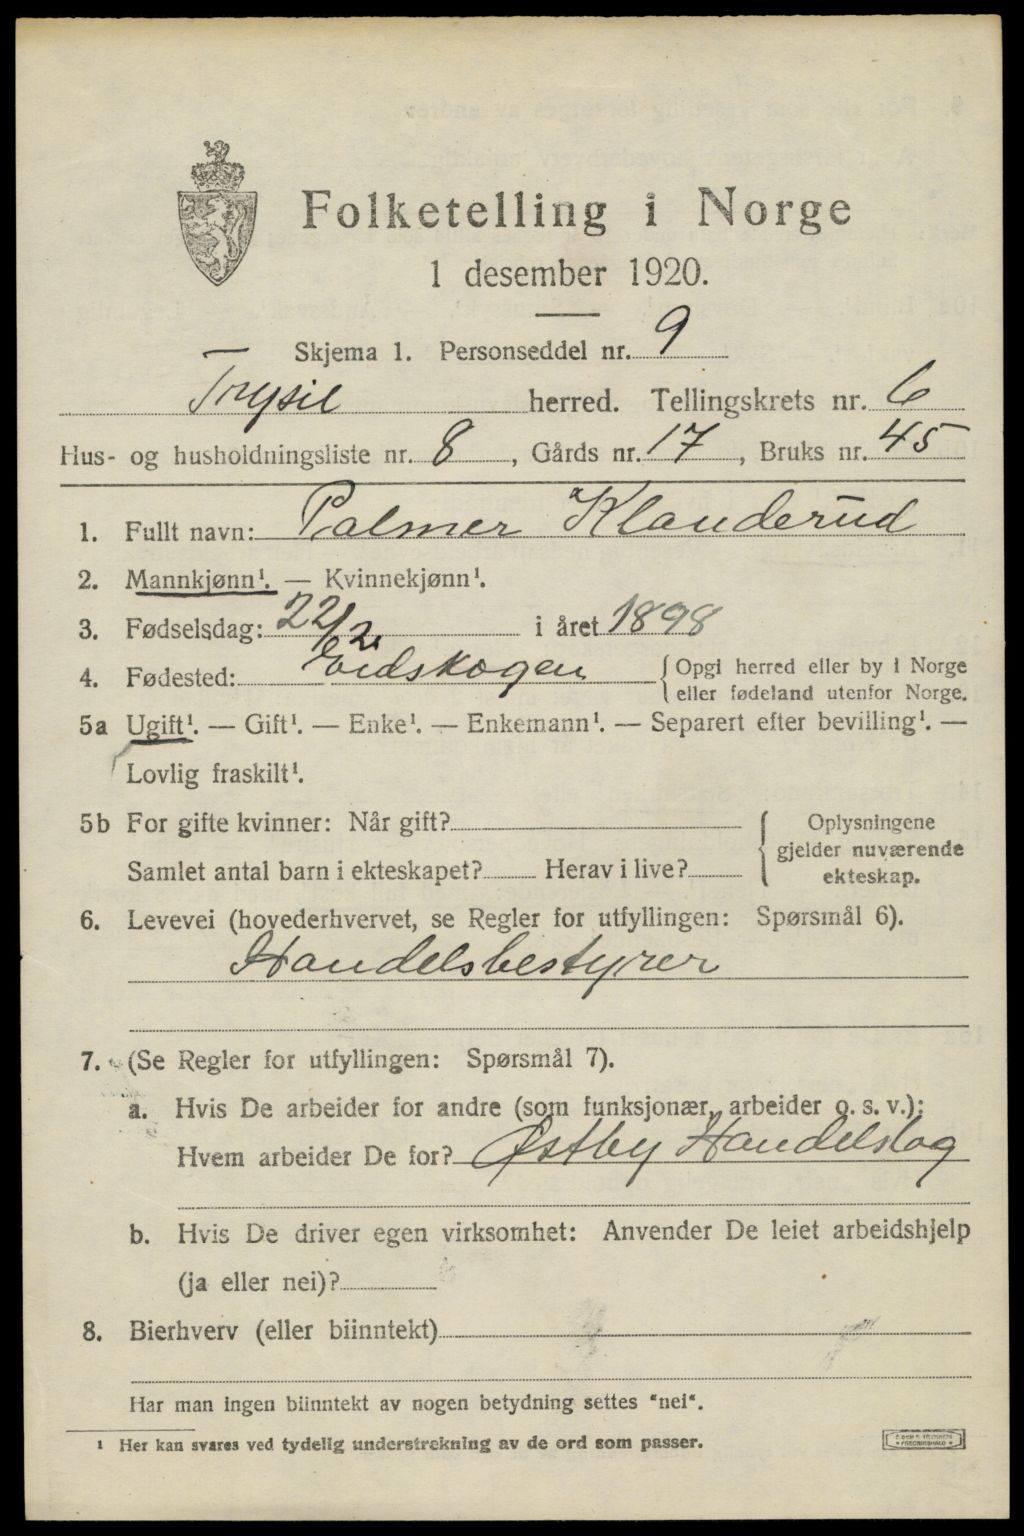 Folketelling i Norge
1 desember 1920.
Skjema 1. Personseddel nr. 9
Trysil herred. Tellingskrets nr. 6
Hus- og husholdningsliste nr. 8, Gårds nr. 17, Bruks nr. 45
1. Fullt navn: Palmer Klauderud
2. Mannkjønn¹. — Kvinnekjønn¹.
3. Fødselsdag: 22/2 i året 1898
4. Fødested: Eidskogen {Opgi herred eller by i Norge
eller fødeland utenfor Norge.
5a Ugift¹. — Gift¹. — Enke¹. — Enkemann¹. — Separert efter bevilling¹. —
Lovlig fraskilt¹.
5b For gifte kvinner: Når gift? Oplysningene
gjelder nuværende
Samlet antal barn i ekteskapet? Herav i live?
ekteskap.
6. Levevei (hovederhvervet, se Regler for utfyllingen: Spørsmål 6).
Handelsbestyrer
7. (Se Regler for utfyllingen: Spørsmål 7).
a. Hvis De arbeider for andre (som funksjonær, arbeider o. s. v.):
Hvem arbeider De for? Østby Handelslag
b. Hvis De driver egen virksomhet: Anvender De leiet arbeidshjelp
(ja eller nei)?
8. Bierhverv (eller biinntekt)
Har man ingen biinntekt av nogen betydning settes "nei".
¹ Her kan svares ved tydelig understrekning av de ord som passer.